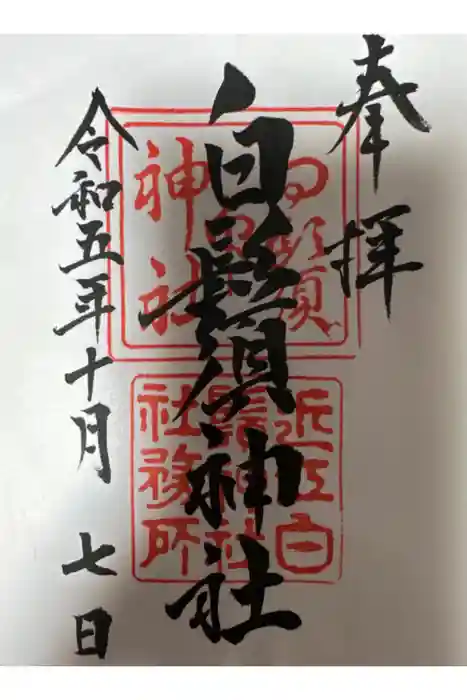 奉拝
白鬚神社
近江白
鬚神社
社務所
令和五年十月 七日